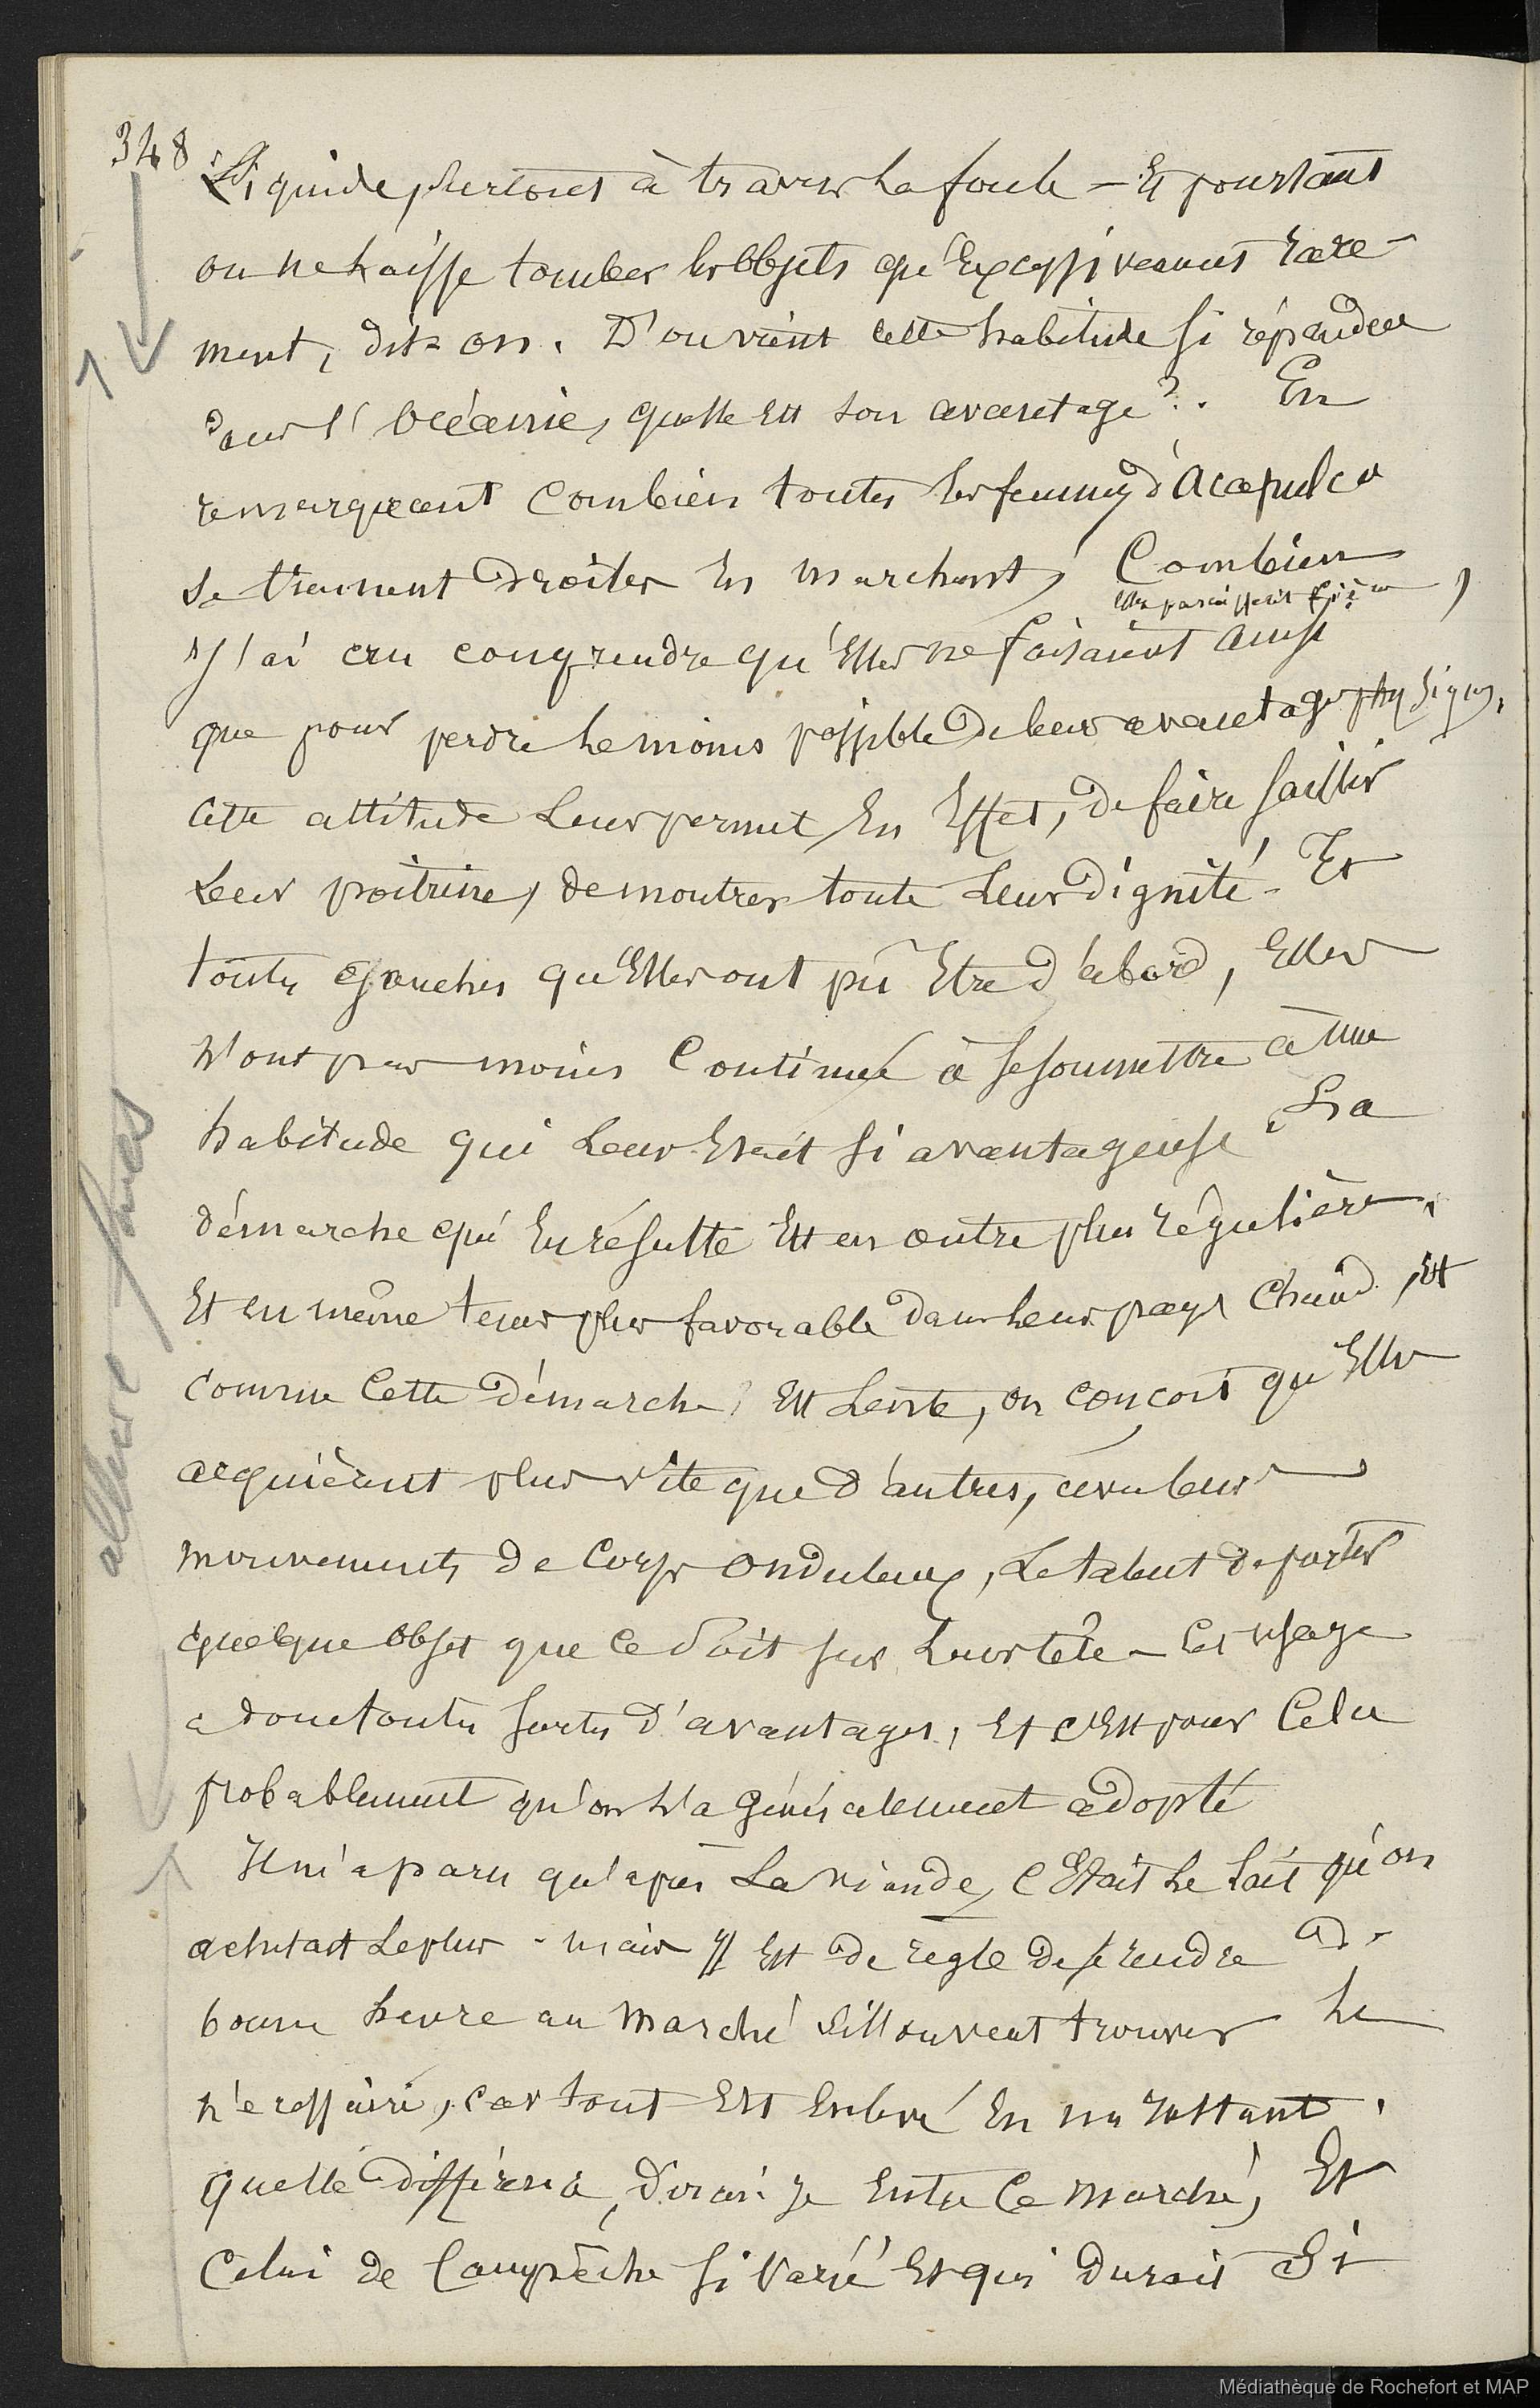 348
Liquide surtout à travers la foule — Et pourtant
on ne laisse tomber les objets qu'Excessivement rare-
ment, dit-on. D'ou vient cette habitude si répandue
dans l'Océanie, quelle Est son avantage?. En
remarquant Combien toutes les femmes d'Acapulco
se tiennent droites En marchant, Combien
elles paraissent fières,
J'ai cru comprendre qu'Elles ne faisaient ainsi
que pour perdre le moins possible de leurs avantages physiques,
Cette attitude Leur permet En Effet, de faire saillir
Leur poitrine, de montrer toute Leur dignité - Et
toutes gauches qu'Elles ont pû Etre d'abord, Elles
N'ont pas moins Continué à se soumettre à une
habitude qui Leur Etait si avantageuse. La
démarche qui En résulte Est en outre plus régulière,
Et en même tems plus favorable dans leur pays Chaud, Et
comme Cette démarche Est Lente, on conçoit qu'Elles
acquièrent plus vite que d'autres, avec leurs
mouvements de Corps onduleux, Le talent de porter
quelque objet que Ce soit sur Leur tête — Cet usage
a donc toutes sortes d'avantages, Et c'Est pour Cela
probablement qu'on l'a généralement adopté
Il m'a paru qu'après La viande, C'Etait le lait qu'on
achetait Le plus - mais Il Est de règle de se rendre de
bonne heure au Marché si l'on veut trouver le
nécessaire, car tout Est Enlevé En un Instant.
quelle différence, dirai-je Entre Ce marché, Et
Celui de Campêche si varié Et qui durait Si
allure
Médiathèque de Rochefort et MAP